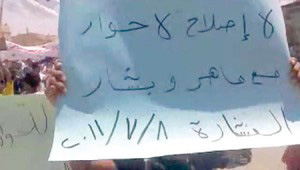 لا إصلاح لا حوار
مع ماهر و بشار
٢٠١١/٧/٨